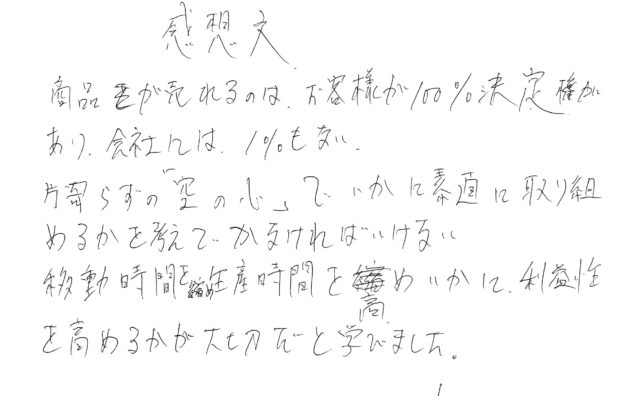 感想文
商品が売れるのは、お客様が100%決定権があ
あり、会社には、1%もない、
片寄らずの「空の心」で いかに素直に取り組
めるかを考えていかなければいけない
移動時間を縮め生産時間を高めいかに、利益性
を高めるかが大切だと学びました。